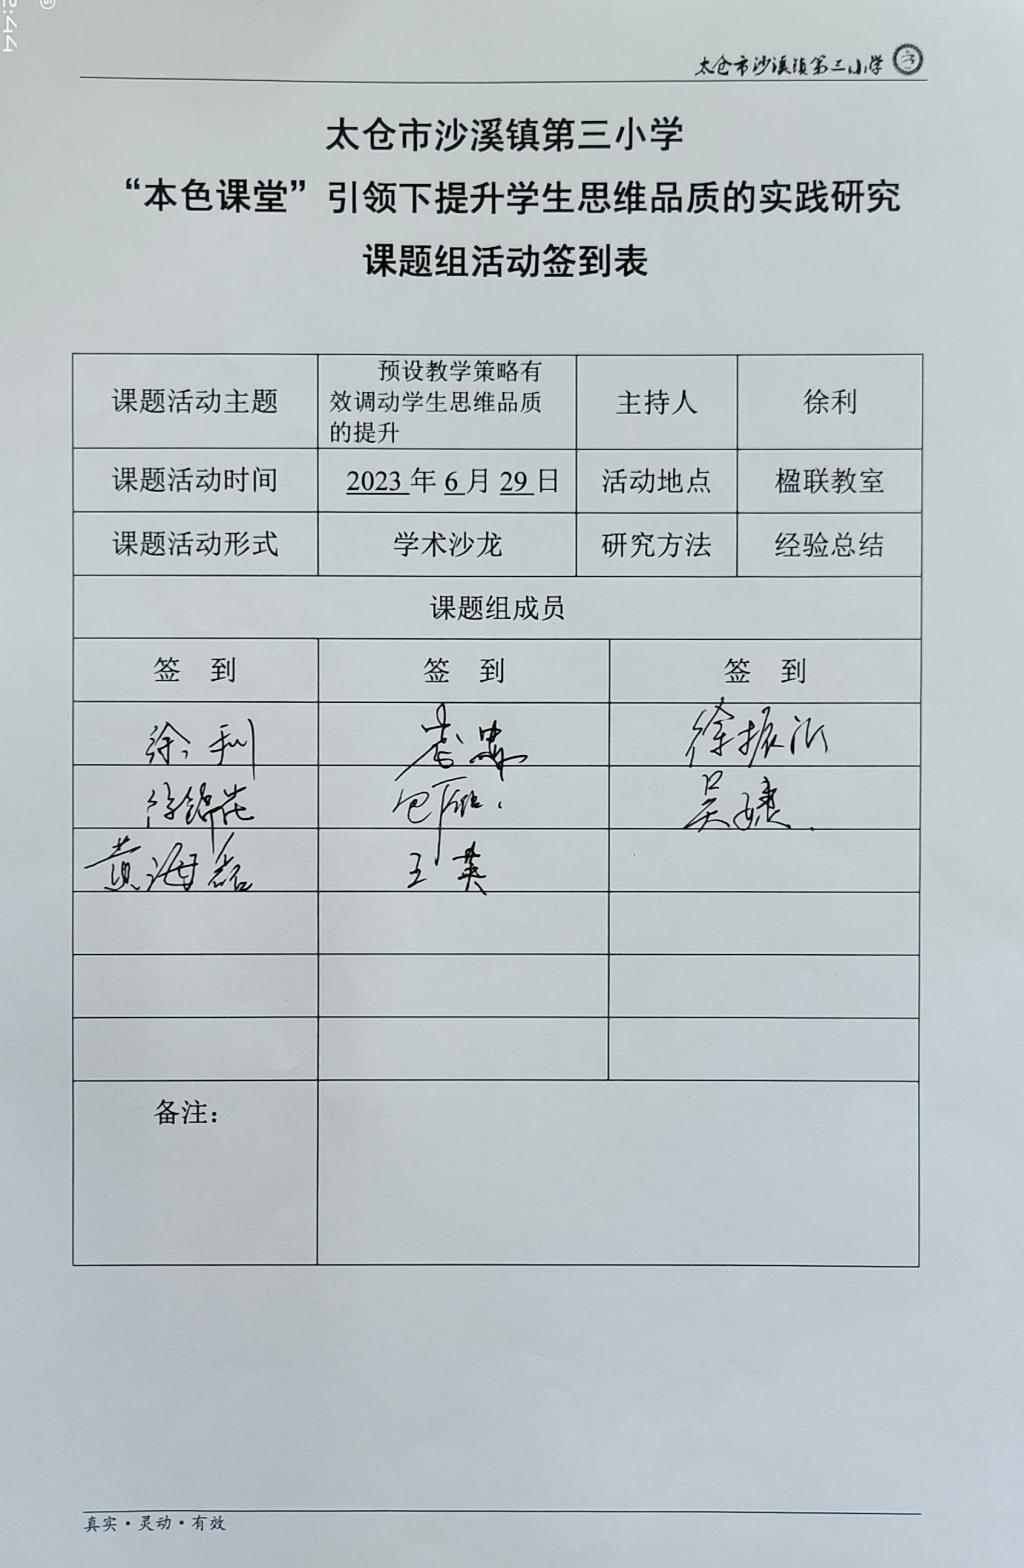 太仓市沙溪镇第三小学
太仓市沙溪镇第三小学
“本色课堂”引领下提升学生思维品质的实践研究
课题组活动签到表
课题活动主题
预设教学策略有
效调动学生思维品质
的提升
主持人
徐利
课题活动时间
2023 年 6 月 29 日
活动地点
楹联教室
课题活动形式
学术沙龙
研究方法
经验总结
课题组成员
签 到
签 到
签 到
徐利
徐振江
徐锦花
吴婕
黄海磊
王英
备注：
真实·灵动·有效